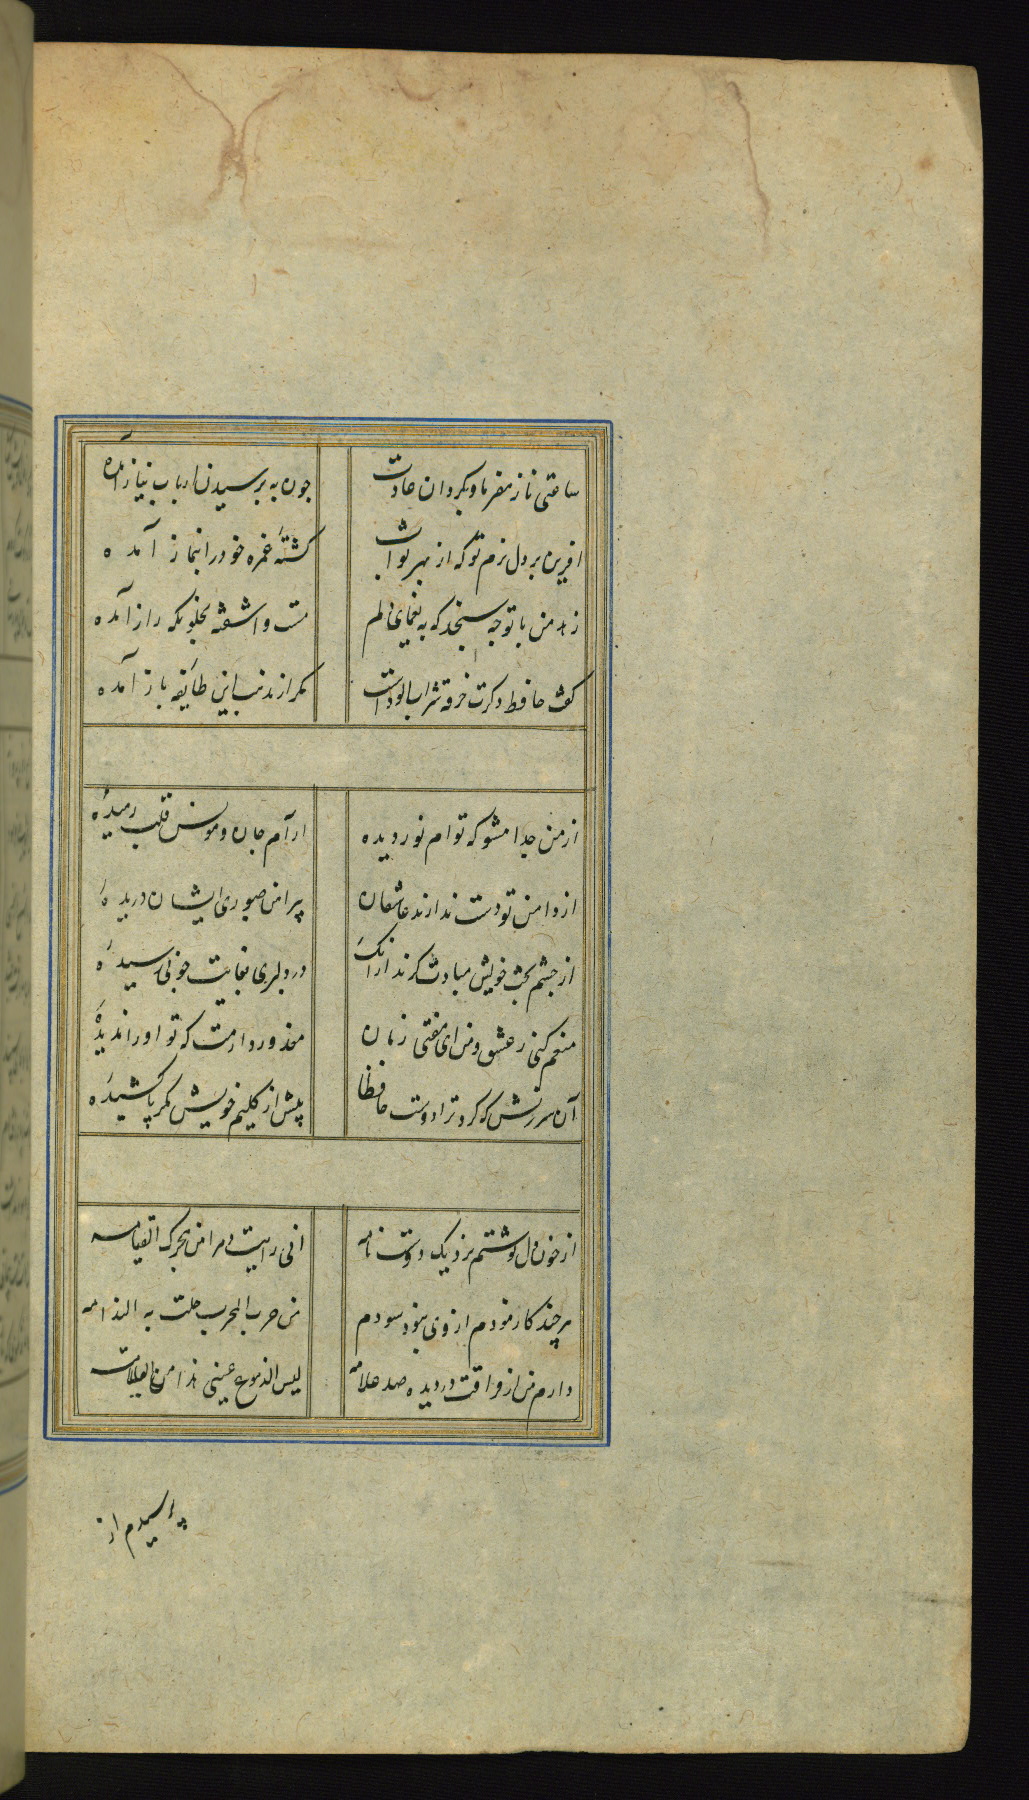 ساعتی ناز مفرما و بگردان عادت چون به پرسیدن ارباب نیاز آمده
آفرین بر دل نرم تو که از بهر ثواب کشتهٔ غمزه خود را بنماز آمده
زهد من با تو چه سنجد که به یغمای دلم مست و آشفته بخلوتگه راز آمده
گفت حافظ دکرت خرقه شراب‌آلودست مکر از مذهب این طایفه باز آمده
از من جدا مشو که توام نور دیده آرام جان و مونس قلب رمیدهٔ
از دامن تو دست ندارند عاشقان پیراهن صبوری ایشان دریدهٔ
از چشم بخت خویش مبادت گزند ازانک در دلبری بغایت خوبی رسیدهٔ
منعم کنی ز عشق وی ای مفتی زمان معذور دارمت که تو او را ندیدهٔ
آن سرزنش که کرد ترا دوست حافظا بیش از کلیم خویش مکر پا کشیدهٔ
از خون دل نوشتم نزدیک دوست نامه انی رایت دهرا من هجرک القیامه
هر چند کازمودم از وی نبود سودم من جرب المجرب حلت به الندامه
دارم من از فراقت در دیده صد علامه لیس الدموع عینی هذا من العلامه
پرسیدم از